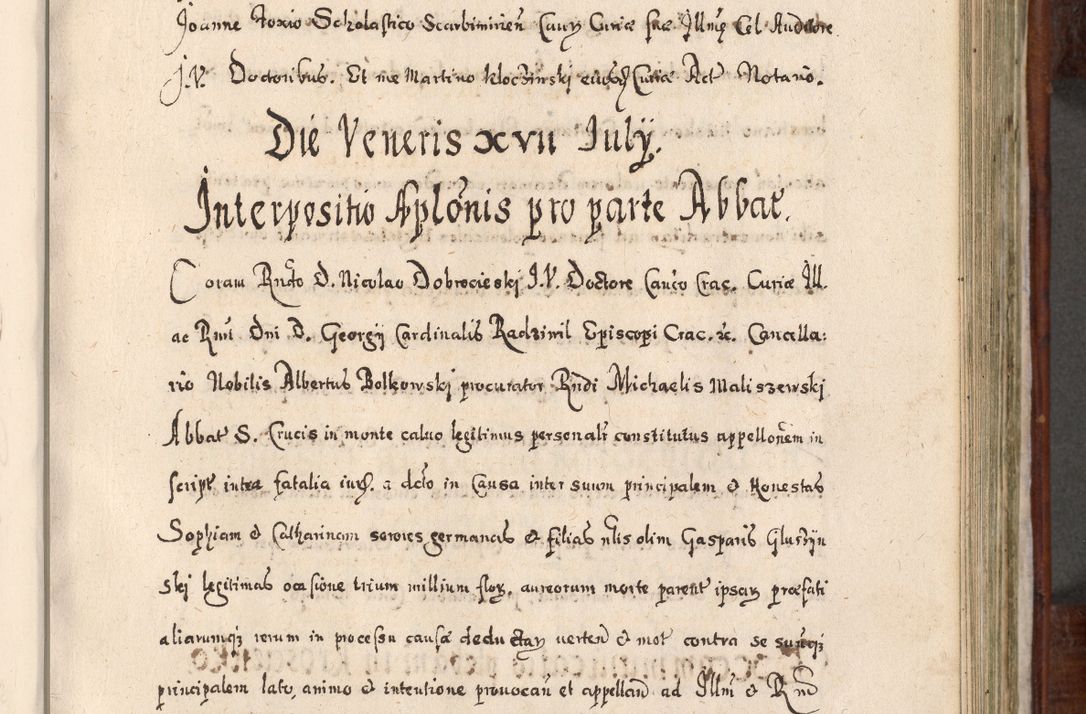 Joanne Foxio Scholastico Scarbimirien̄ Cauƺ Curiæ suæ Illmæ Cel Auditore
J.V. Doctoribus. Et me Martino Kloczinski eiusd Curiæ Act Notario.
Die Veneris xvii Julÿ.
Interpositio Aplōnis pro parte Abbat.
Coram Rn̄do D. Nicolao Dobrocieski J.V. Doctore Canco Crac. Curiæ Ill.
ac Rmī Dni D. Georgÿ Cardinalis Radziwil Episcopi Crac. ꝛc. Cancella:
rio Nobilis Albertus Bolkowski procurator Rn̄di Michaelis Maliszewski
Abbat S. Crucis in monte caluo legitimus personalr̄ constitutus appellōnem in
script intra fatalia iur. a dcto in Causa inter suum principalem & Honestas
Sophiam & Catharinam sorores germanas & filias nlis olim Gasparis Gluszÿn
skj legitimas occasione trium millium floꝝ. aureorum morte parent ipsaꝝ præfati
aliarumqꝫ rerum in processu causæ deductaꝝ verten̄ & mot contra se suumqꝫ
principalem lato, animo & intentione prouocan̄ et appellan̄d ad Illm̄ & Rm̄